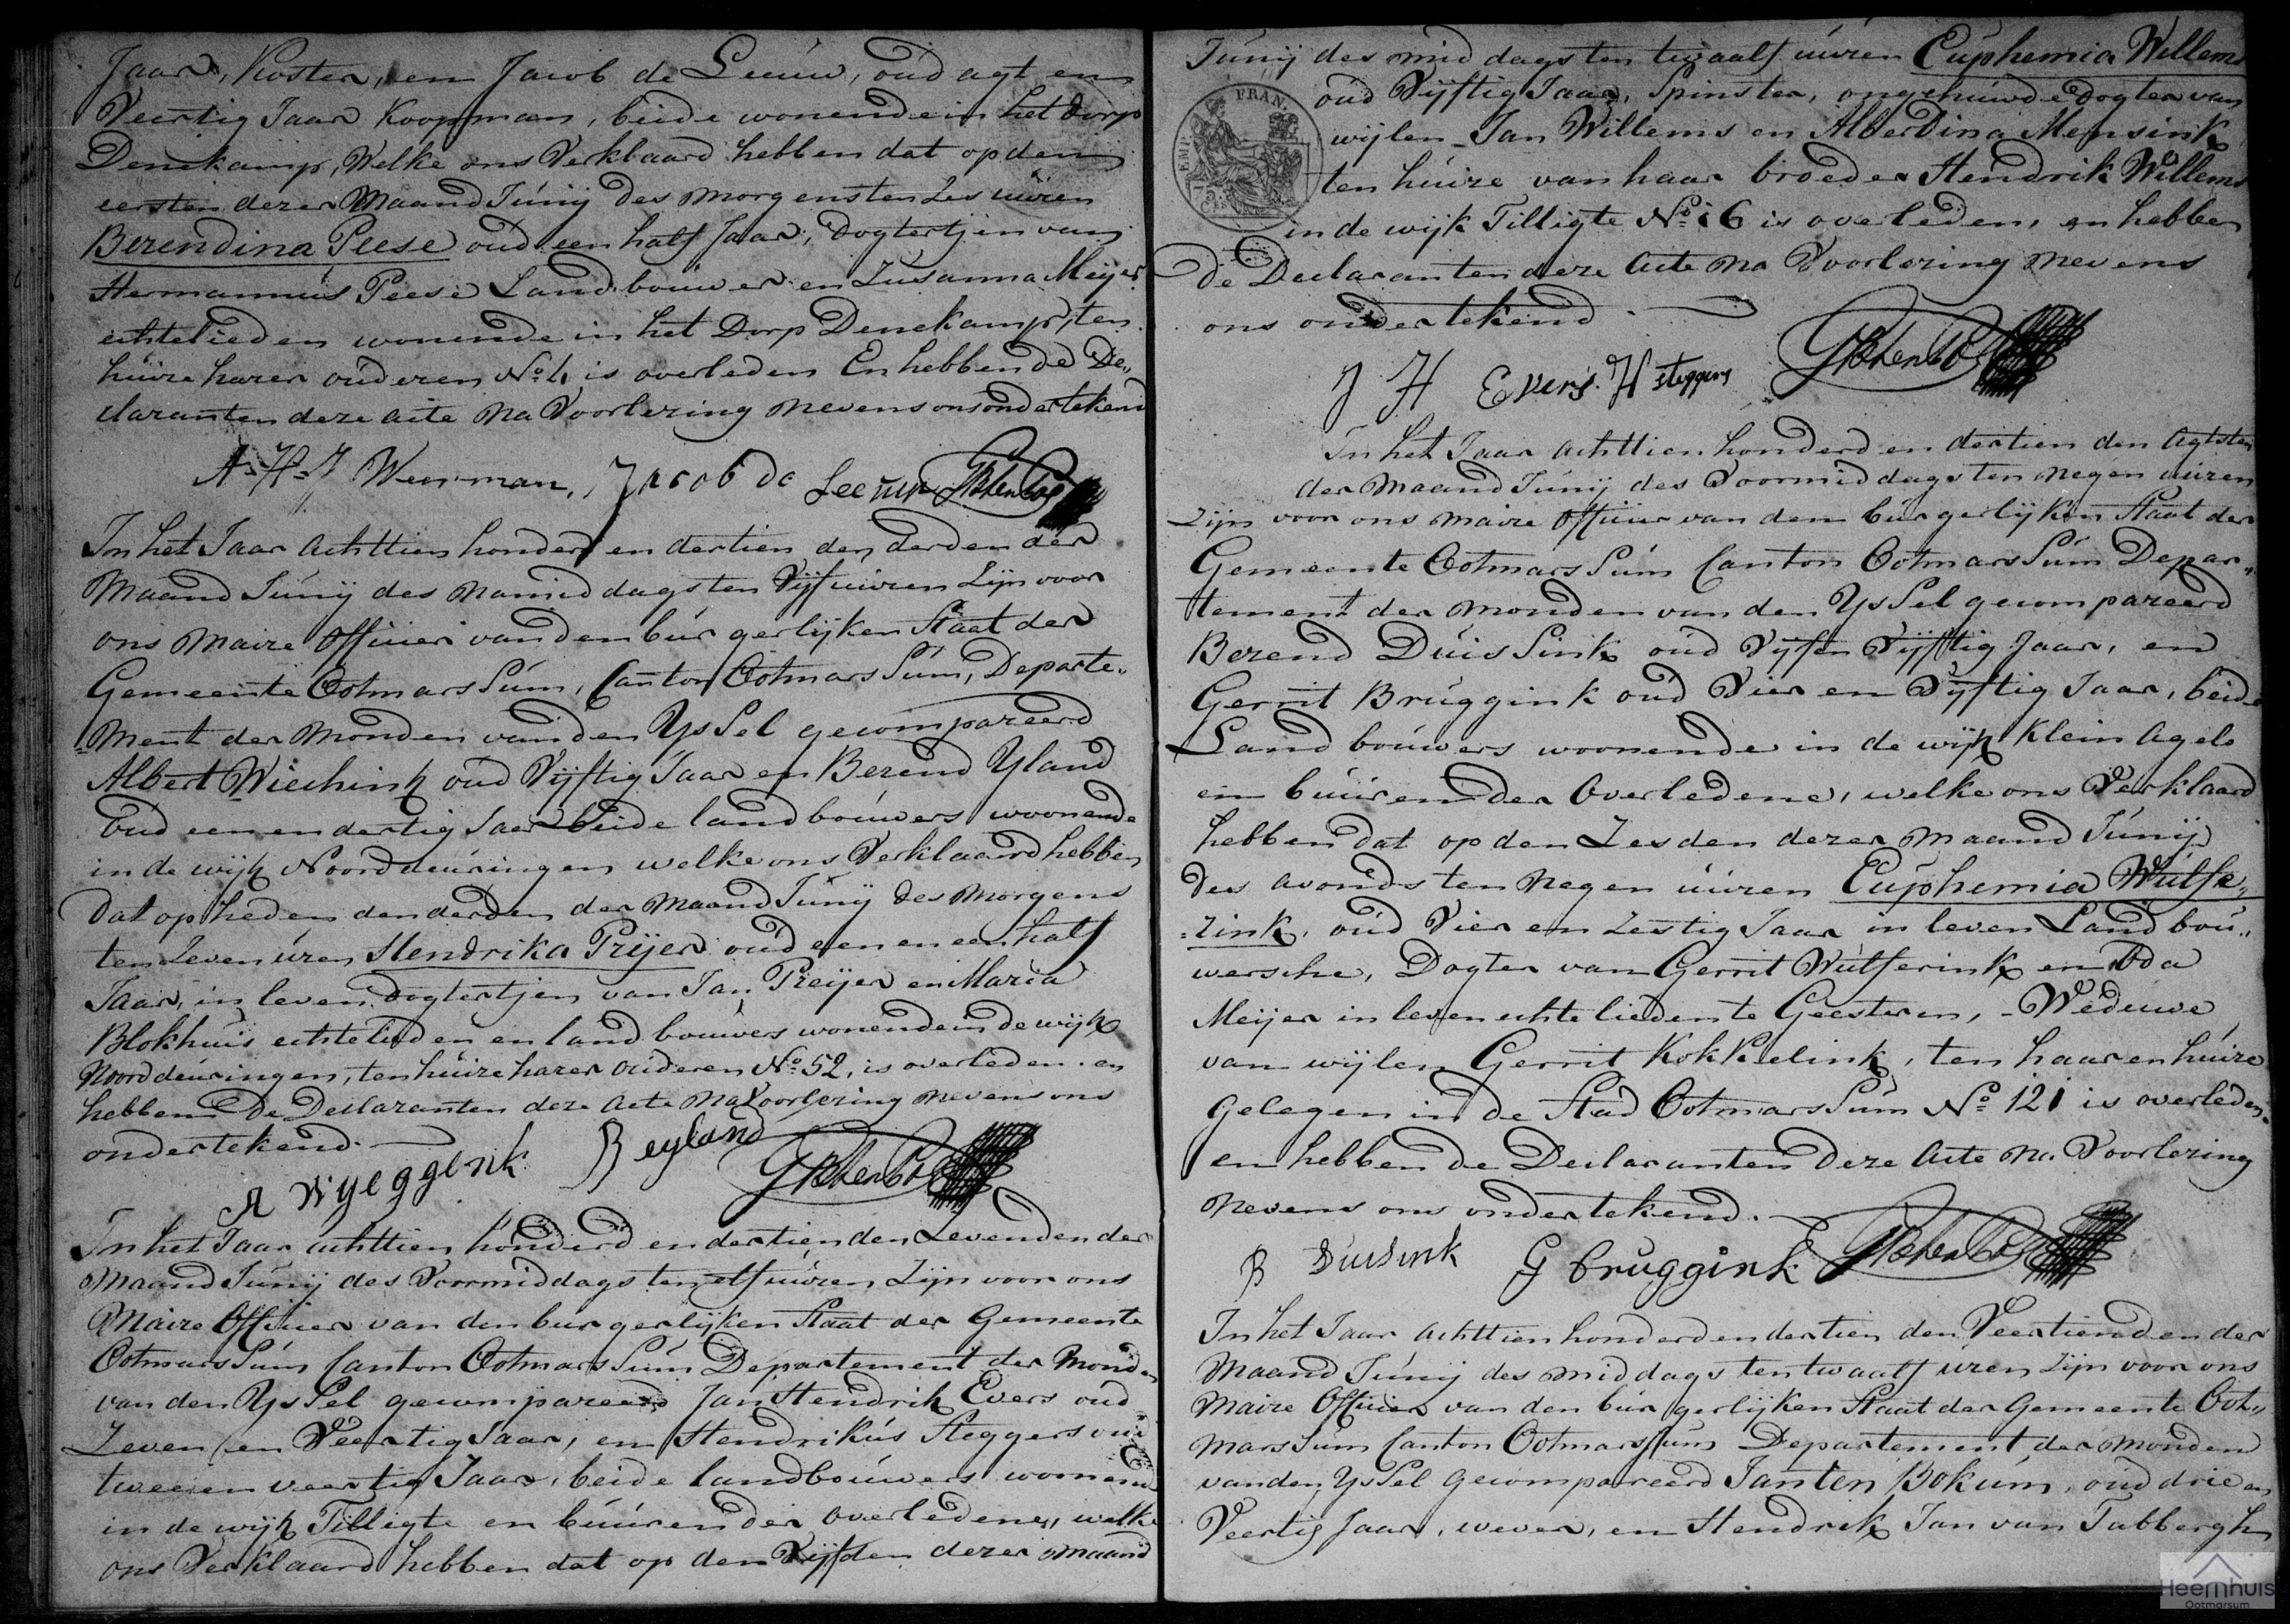 Jaar, Koster, en Jacob de Leeuw, oud agt en
Veertig Jaar Koopman, beide wonende in het dorp
Denekamp, Welke ons Verklaard hebben dat op den
eersten dezer Maand Junij des morgens ten Zes uuren
Berendina Peese oud een half Jaar, Dogtertjen van
Hermannus Peese Landbouwer en Zusanna Meijer
echtelieden wonende in het Dorp Denekamp, ten
huize harer ouderen No 4 is overleden En hebben de De„
claranten deze acte na Voorlezing nevens ons ondertekend
A. H. J Weerman, Jacob de Leeuw
In het Jaar achttien honderd en dertien den derden der
Maand Junij des namiddags ten Vijf uuren Zijn voor
ons Maire officier van den burgerlijken Staat der
Gemeente Ootmarssum, Canton Ootmarssum, Departe„
ment der Monden van den Yssel gecompareerd
Albert Wiechink oud Vijftig Jaar en Berend Yland
oud een en dertig Jaar beide landbouwers woonende
in de wijk Noorddeuringen welke ons Verklaard hebben
dat op heden den derden der Maand Junij des Morgens
ten Zeven uren Hendrika Prijer oud een en een half
Jaar, in leven dogtertjen van Jan Preijer en Maria
Blokhuis echtelieden en landbouwers wonende in de wijk
Noorddeuringen, ten huize harer ouderen No 52, is overleden. en
hebben de Declaranten deze acte na Voorlezing nevens ons
ondertekend.
A Wyeggenk B eyland
In het Jaar achttien honderd en dertien den Zevenden der
Maand Junij des Voormiddags ten elf uuren Zijn voor ons
Maire Officier van den burgerlijken Staat der Gemeente
Ootmarssum Canton Ootmarssum Departement der Monden
van den Yssel gecompareerd Jan Hendrik Evers oud
Zeven en Veertig Jaar, en Hendrikus Steggers oud
twee en veertig Jaar, beide landbouwers wonend
in de wijk Tilligte en buuren der overledene, welke
ons Verklaard hebben dat op den Vijfden dezer maand
Junij des middags ten twaalf uuren Euphemia Willems
oud Vijftig Jaar, Spinster, ongehuwde dogter van
wijlen Jan Willems en Alberdina Mensink
ten huize van haar broeder Hendrik Willems
in de wijk Tilligte No 16 is overleden, en hebben
de Declaranten deze acte na Voorlezing nevens
ons ondertekend.
FRAN.
EMP.
J H Evers. H steggers
In het Jaar achttien honderd en dertien den Agtsten
der Maand Junij des Voormiddags ten negen uuren
Zijn voor ons Maire Officier van den burgerlijken Staat der
Gemeente Ootmarssum Canton Ootmarssum Depar„
tement der Monden van den Yssel gecompareerd
Berend Duissink oud Vijf en Vijftig Jaar, en
Gerrit Bruggink oud Vier en Vijftig Jaar, beide
Landbouwers woonende in de wijk Klein Agelo
en buuren der Overledene, welke ons Verklaard
hebben dat op den Zesden dezer maand Junij
des avonds ten negen uuren Euphemia Wulfe„
zink, oud Vier en Zestig Jaar in leven Landbou„
wersche, Dogter van Gerrit Wulferink en Oda
Meijer in leven echtelieden te Geesteren, Weduwe
van wijlen Gerrit Kokkelink, ten haaren huize
gelegen in de Stad Ootmarssum No 121 is overleden.
en hebben de Declaranten deze acte na Voorlezing
nevens ons ondertekend.
B Duisink G bruggink
In het Jaar achttien honderd en dertien den Veertienden der
Maand Junij des middags ten twaalf uren Zijn voor ons
Maire Officier van den burgerlijken Staat der Gemeente Oot„
marssum Canton Ootmarssum Departement der monden
van den Yssel gecompareerd Jan ten Bokum, oud drie en
Veertig Jaar, wever, en Hendrik Jan van Tubbergh
Heemhuis
Ootmarsum